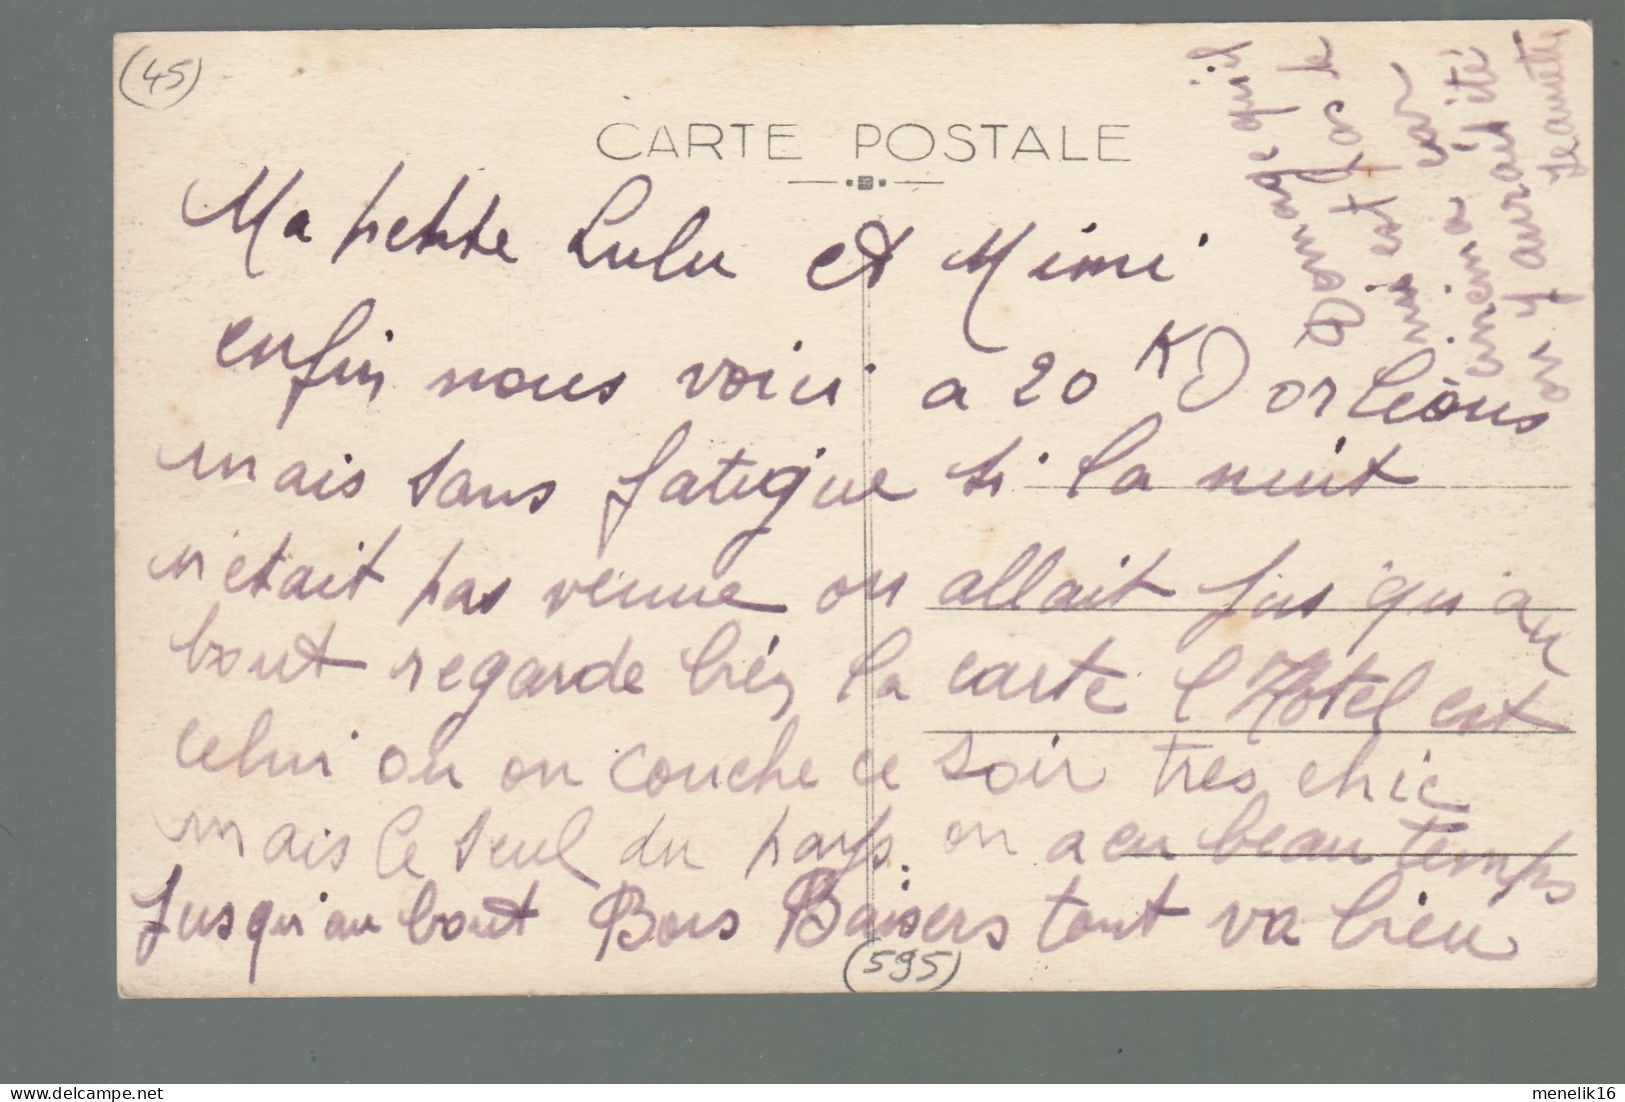 (45)
CARTE POSTALE
Ma petite Lulu et Mimi
enfin nous voici a 20 K D orléans
mais sans fatigue si la nuit
n'était pas venue on allait jus'qu'au
bout regarde bien la carte l'Hôtel est
celui ou on couche ce soir tres chic
mais le seul du pays. on a eu beau temps
jusqu'au bout Bons Baisers tout va bien
(595)
Domage qu'il
est pas le
car
cinema été
on y aurait
Jeannette
delcampe.net
menelik16